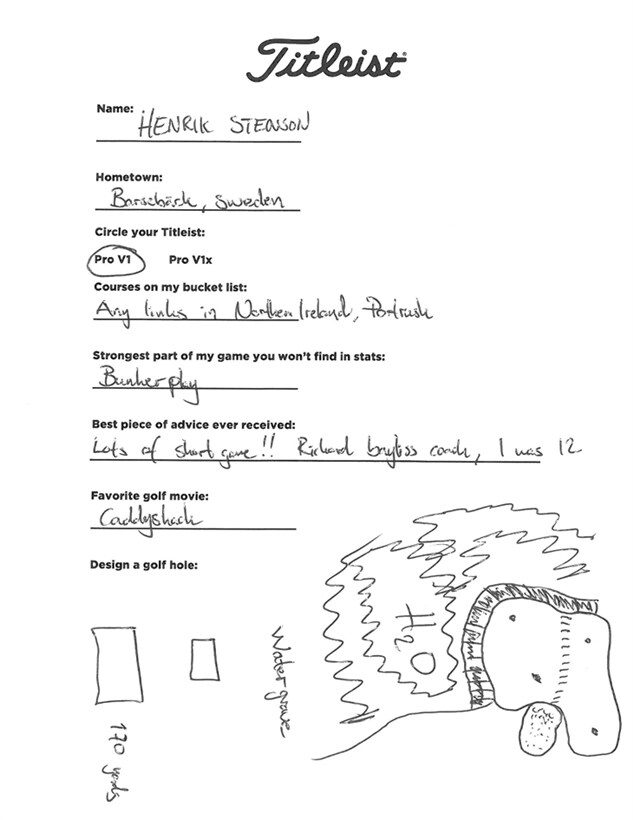 Titleist
Name:
HENRIK STENSON
Hometown:
Barsebäck, Sweden
Circle your Titleist:
Pro V1 Pro V1x
Courses on my bucket list:
Any links in Northern Ireland, Portrush
Strongest part of my game you won't find in stats:
Bunker play
Best piece of advice ever received:
Lots of short game!! Richard bayliss coach, I was 12
Favorite golf movie:
Caddyshack
Design a golf hole:
H2O
Water
170 yards